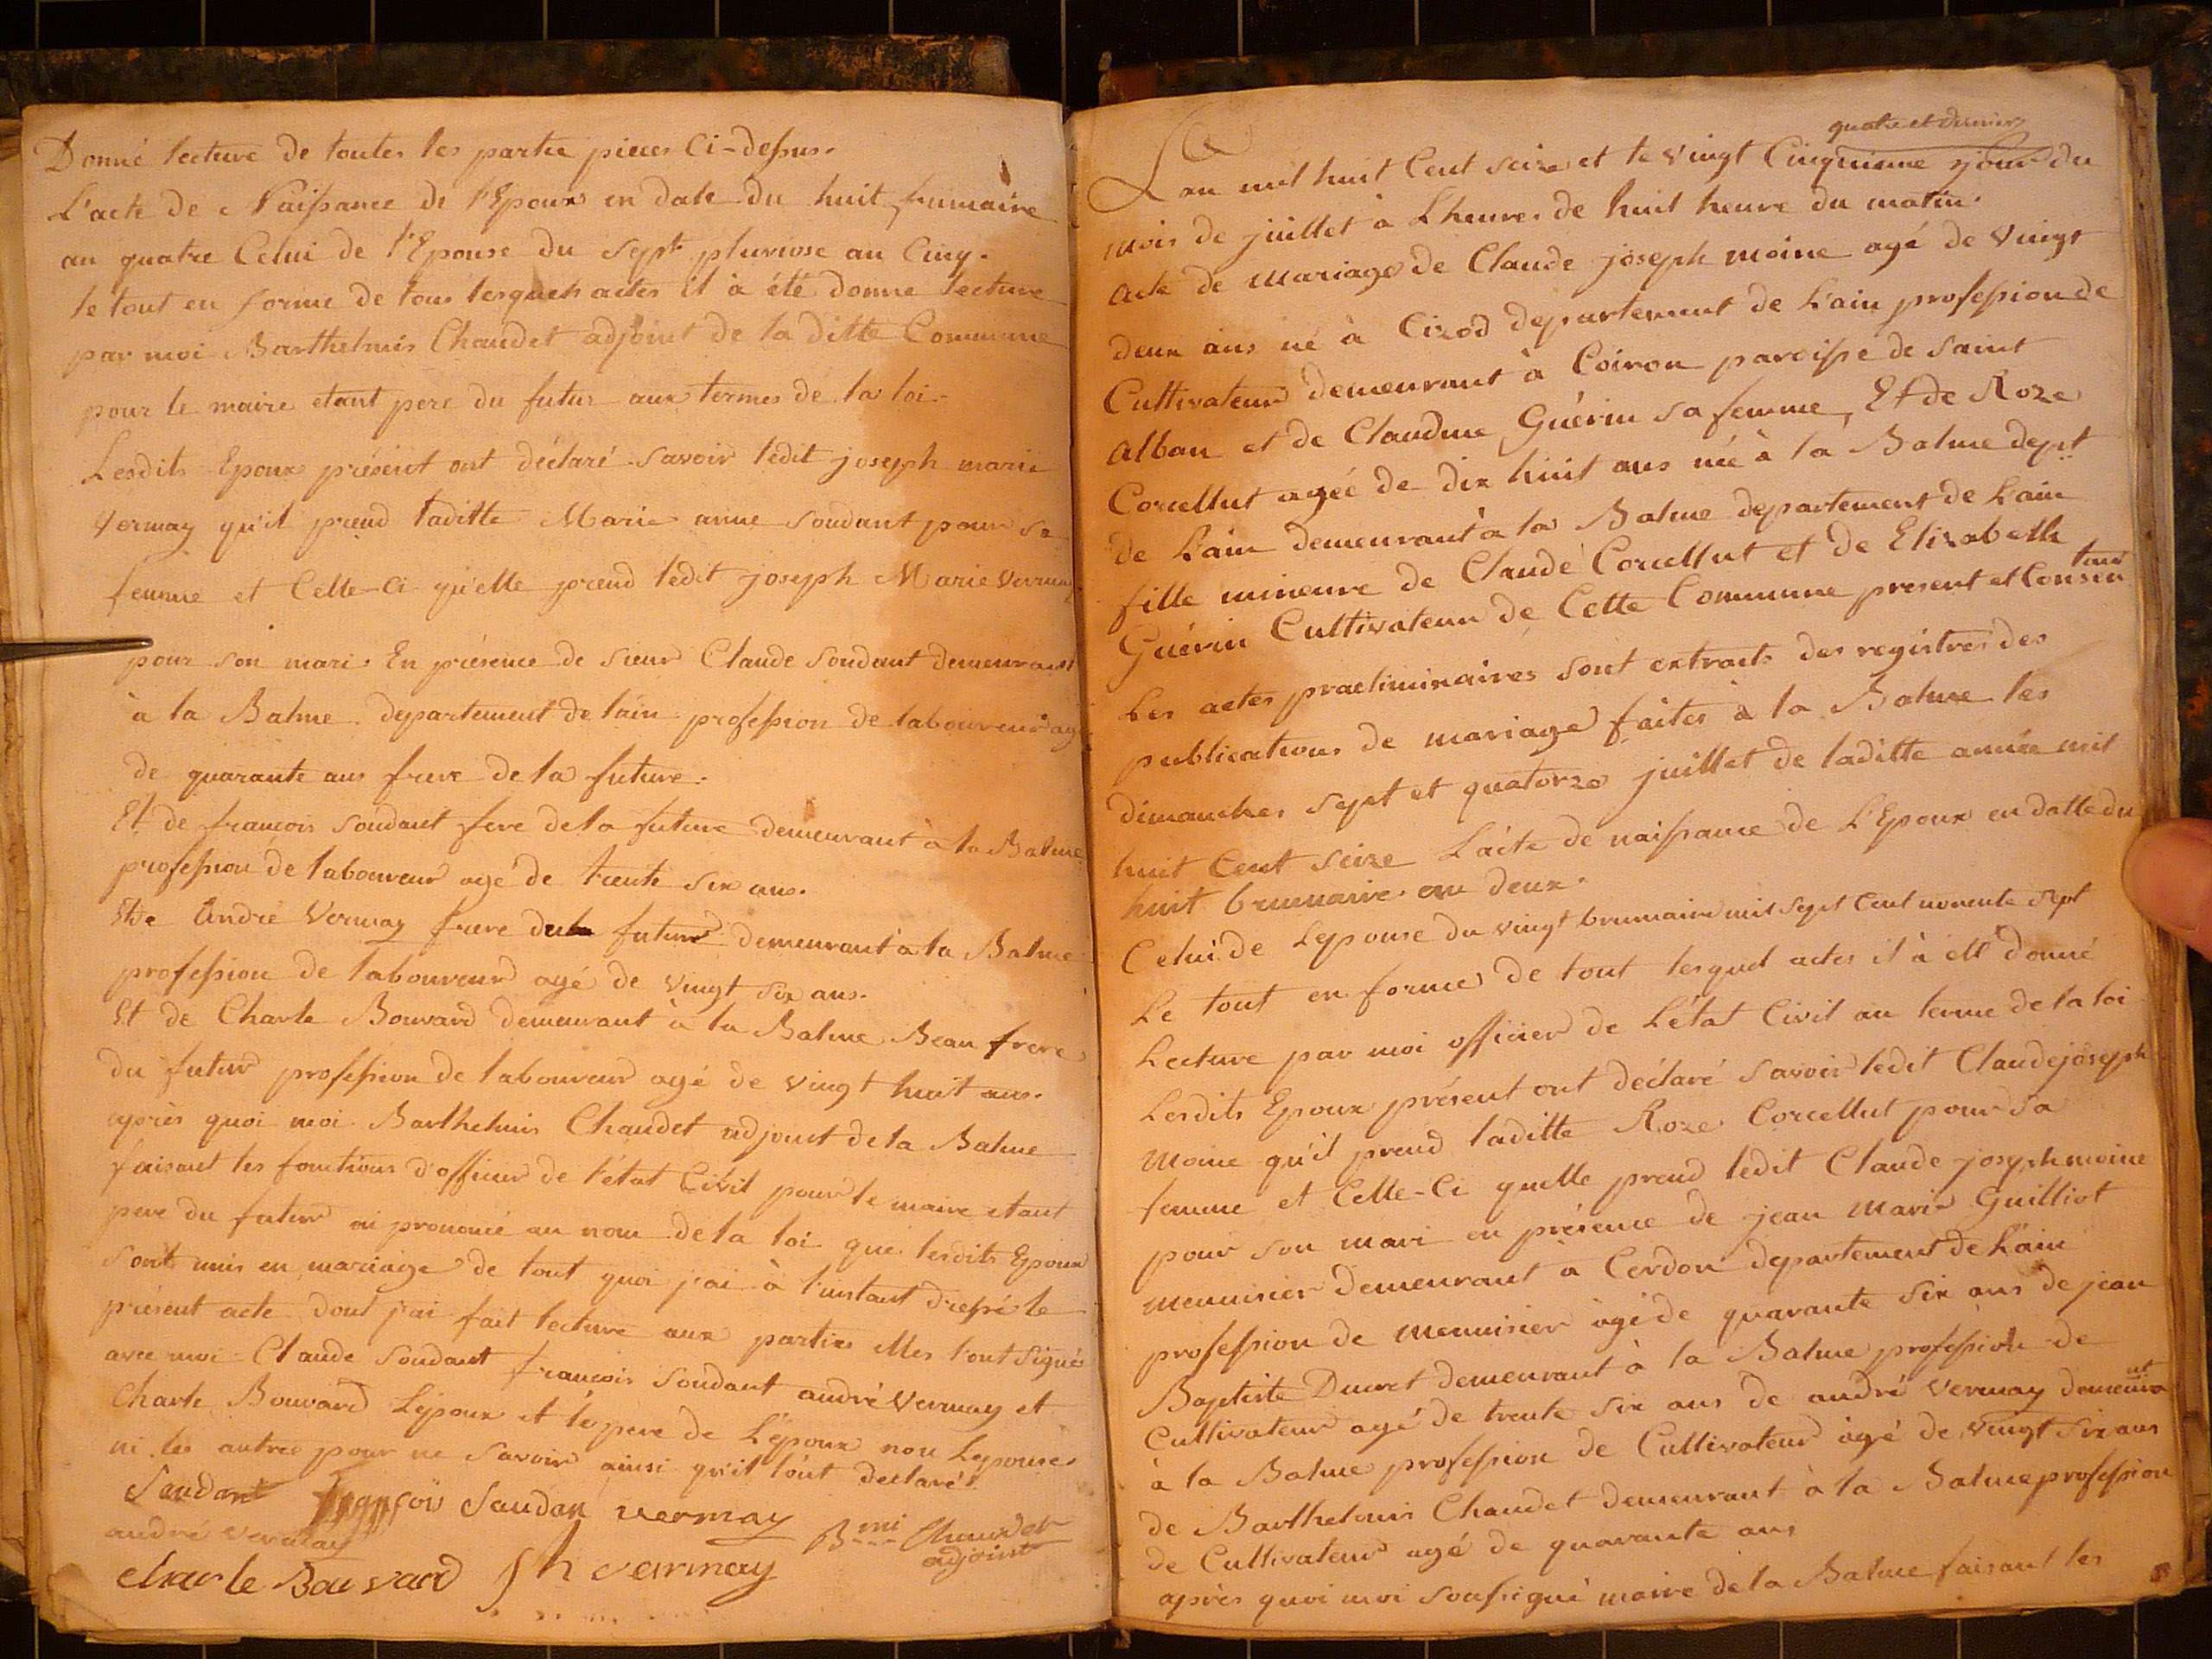 Donné lecture de toutes les partie pieces Ci-dessus.
L'acte de Naissance de l'Epoux en date du huit frimaire
an quatre Celui de l'Epouse du Sept pluviose an Cinq.
le tout en forme de tous lesquels actes il à été donne lecture
par moi Barthelmis Chaudet adjoint de la ditte Commune
pour le maire etant pere du futur aux termes de la loi.
Lesdits Epoux présent ont déclaré Savoir ledit joseph marie
Vermay qu'il prend laditte Marie anne Soudant pour sa
femme et Celle-Ci qu'elle prend ledit joseph Marie Vermay
pour son mari. En présence de sieur Claude Soudant demeurant
à la Balme departement de lain profession de laboureur ag
de quarante ans frere de la future.
Et de francois Soudant fere de la future demeurant à la Balme
profession de laboureur agé de trente six ans.
Et de André Vermay frere du futur demeurant à la Balme
profession de laboureur agé de vingt six ans.
Et de Charle Bouvard demeurant à la Balme Beau frere
du futur profession de laboureur agé de vingt huit ans.
après quoi moi Barthelmis Chaudet adjoint de la Balme
faisant les fonctions d'officier de l'état Civil pour le maire etant
pere du futur ai prononcé au nom de la loi que lesdits Epoux
sont unis en mariage de tout quoi j'ai à l'instant dressé le
présent acte dont j'ai fait lecture aux parties elles l'ont signés
avec moi Claude Soudant francois Soudant andré Vermay et
Charle Bouvard L'epoux et le pere de L'époux non Lepouse
ni les autres pour ne savoir ainsi qu'il l'ont declarés
Saudant François Saudan vermay
andré vermay B mi Chaudet
adjoint
charle Bouvard J h vermay
quatre et dernier
Lan mil huit Cent seize et le vingt Cinquieme jour du
mois de juillet à Lheure de huit heure du matin.
acte de mariage de Claude joseph moine agé de vingt
deux ans né à Cizod departement de Lain profession de
Cultivateur demeurant à Coiron paroisse de Saint
alban et de Claudine Guérin sa femme, Et de Roze
Corcellut agéé de dix huit ans née à la Balme dept
de Lain demeurant à la Balme departement de Lain
fille mineure de Claude Corcellut et de Elizabelle
Guérin Cultivateur de Cette Commune present et Consentant
Les actes praeliminaires sont extraits des registres des
publications de mariage faites à la Balme les
dimanches sept et quatorze juillet de laditte année mil
huit Cent seize L'acte de naissance de L'Epoux en datte du
huit brumaire an deux.
Celui de Lepouse du vingt brumaire mil sept Cent nonente sept
Le tout en forme de tout lesquel actes il à été donné
Lecture par moi officier de L'état Civil au terme de la loi
Lesdits Epoux présent ont déclaré savoir ledit Claude joseph
Moine qu'il prend laditte Roze Corcellut pour sa
femme et Celle-Ci quelle prend ledit Claude joseph moine
pour son mari en présence de jean Marie Guilliot
menuisier demeurant a Cerdon departement de Lain
profession de menuisier agé de quarante six ans de jean
Baptiste Ducret demeurant à la Balme profession de
Cultivateur agé de trente six ans de andré Vermay demeurant
à la Balme profession de Cultivateur agé de vingt six ans
de Barthelomis Chaudet demeurant à la Balme profession
de Cultivateur agé de quarante ans
après quoi moi soussigné maire de la Balme faisant les